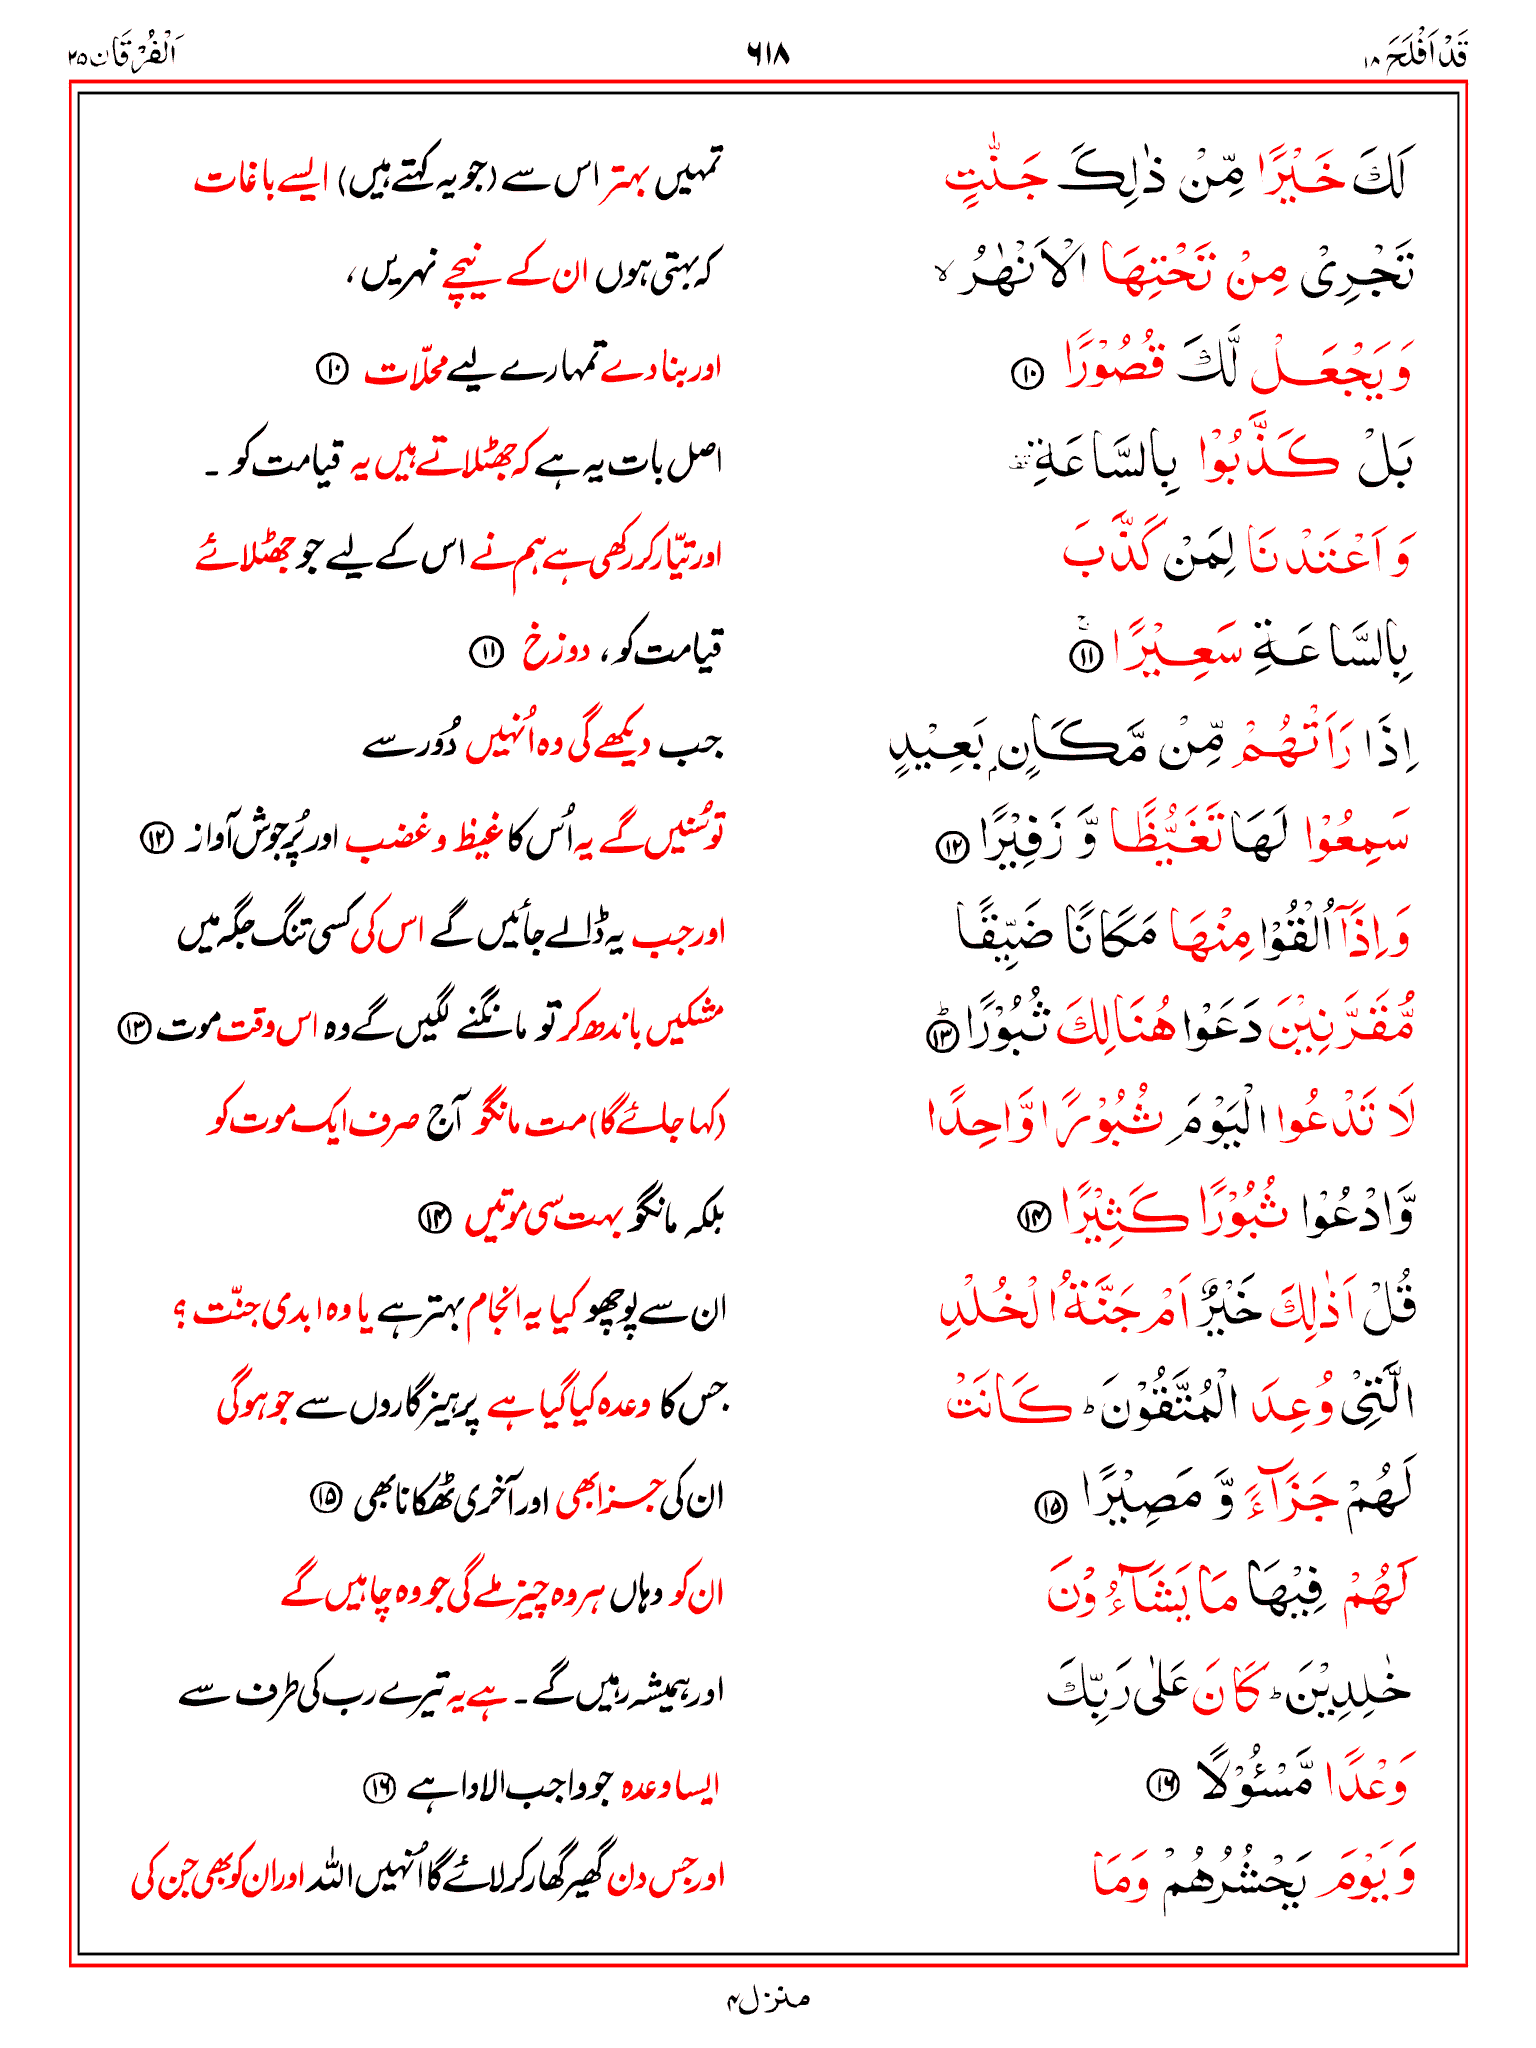 قَدْ اَفْلَحَ ۱۸ ۶۱۸ اَلْفُرْقَان ۲۵
لَكَ خَيْرًا مِّنْ ذٰلِكَ جَنّٰتٍ تمہیں بہتر اس سے (جو یہ کہتے ہیں) ایسے باغات
تَجْرِىْ مِنْ تَحْتِهَا الْاَنْهٰرُ ۙ کہ بہتی ہوں ان کے نیچے نہریں،
وَيَجْعَلْ لَّكَ قُصُوْرًا ⑩ اور بنا دے تمہارے لیے محلّات ⑩
بَلْ كَذَّبُوْا بِالسَّاعَةِ اصل بات یہ ہے کہ جھٹلاتے ہیں یہ قیامت کو ۔
وَاَعْتَدْنَا لِمَنْ كَذَّبَ اور تیّار کر رکھی ہے ہم نے اس کے لیے جو جھٹلائے
بِالسَّاعَةِ سَعِيْرًا ۚ ⑪ قیامت کو، دوزخ ⑪
اِذَا رَاَتْهُمْ مِّنْ مَّكَانٍۭ بَعِيْدٍ جب دیکھے گی وہ اُنہیں دُور سے
سَمِعُوْا لَهَا تَغَيُّظًا وَّ زَفِيْرًا ⑫ تو سُنیں گے یہ اُس کا غیظ و غضب اور پُرجوش آواز ⑫
وَاِذَاۤ اُلْقُوْا مِنْهَا مَكَانًا ضَيِّقًا اور جب یہ ڈالے جائیں گے اس کی کسی تنگ جگہ میں
مُّقَرَّنِيْنَ دَعَوْا هُنَالِكَ ثُبُوْرًا ؕ ⑬ مشکیں باندھ کر تو مانگنے لگیں گے وہ اس وقت موت ⑬
لَا تَدْعُوا الْيَوْمَ ثُبُوْرًا وَّاحِدًا (کہا جائے گا) مت مانگو آج صرف ایک موت کو
وَّادْعُوْا ثُبُوْرًا كَثِيْرًا ⑭ بلکہ مانگو بہت سی موتیں ⑭
قُلْ اَذٰلِكَ خَيْرٌ اَمْ جَنَّةُ الْخُلْدِ ان سے پوچھو کیا یہ انجام بہتر ہے یا وہ ابدی جنّت ؟
الَّتِىْ وُعِدَ الْمُتَّقُوْنَ ؕ كَانَتْ جس کا وعدہ کیا گیا ہے پرہیزگاروں سے جو ہوگی
لَهُمْ جَزَآءً وَّ مَصِيْرًا ⑮ ان کی جزا بھی اور آخری ٹھکانا بھی ⑮
لَهُمْ فِيْهَا مَا يَشَآءُوْنَ ان کو وہاں ہر وہ چیز ملے گی جو وہ چاہیں گے
خٰلِدِيْنَ ؕ كَانَ عَلٰى رَبِّكَ اور ہمیشہ رہیں گے ۔ ہے یہ تیرے رب کی طرف سے
وَعْدًا مَّسْئُوْلًا ⑯ ایسا وعدہ جو واجب الادا ہے ⑯
وَيَوْمَ يَحْشُرُهُمْ وَمَا اور جس دن گھیر گھار کر لائے گا اُنہیں اللہ اور ان کو بھی جن کی
منزل ۴